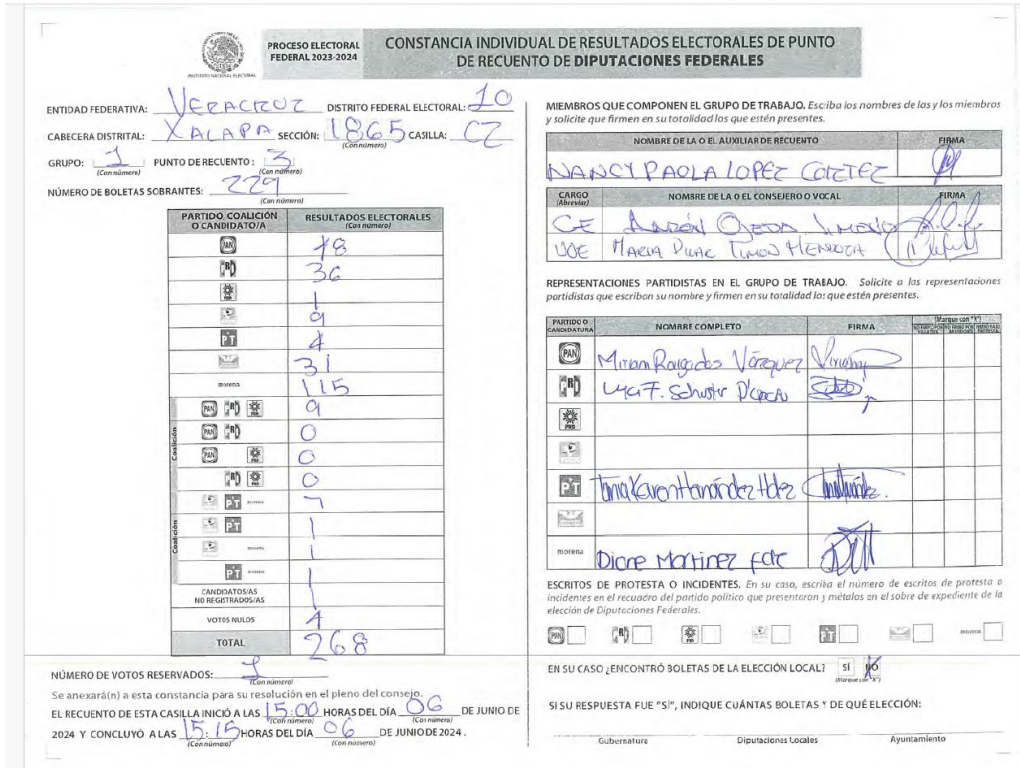 INSTITUTO NACIONAL ELECTORAL
PROCESO ELECTORAL
FEDERAL 2023-2024
CONSTANCIA INDIVIDUAL DE RESULTADOS ELECTORALES DE PUNTO
DE RECUENTO DE DIPUTACIONES FEDERALES
ENTIDAD FEDERATIVA: VERACRUZ DISTRITO FEDERAL ELECTORAL: 10
CABECERA DISTRITAL: XALAPA SECCIÓN: 1865 CASILLA: C2
(Con número)
GRUPO: 1 PUNTO DE RECUENTO: 3
(Con número) (Con número)
NÚMERO DE BOLETAS SOBRANTES: 229
(Con número)
PARTIDO, COALICIÓN O CANDIDATO/A RESULTADOS ELECTORALES (Con número)
PAN 48
PRI 36
PRD 1
9
PT 4
31
morena 115
Coalición
PAN PRI PRD 9
PAN PRI 0
PAN PRD 0
PRI PRD 0
Coalición
PT morena 7
PT 1
morena 1
PT morena 1
CANDIDATOS/AS NO REGISTRADOS/AS
VOTOS NULOS 4
TOTAL 268
NÚMERO DE VOTOS RESERVADOS: 1
(Con número)
Se anexará(n) a esta constancia para su resolución en el pleno del consejo.
EL RECUENTO DE ESTA CASILLA INICIÓ A LAS 15:00 HORAS DEL DÍA 06 DE JUNIO DE
(Con número) (Con número)
2024 Y CONCLUYÓ A LAS 15:15 HORAS DEL DÍA 06 DE JUNIO DE 2024.
(Con número) (Con número)
MIEMBROS QUE COMPONEN EL GRUPO DE TRABAJO. Escriba los nombres de las y los miembros
y solicite que firmen en su totalidad los que estén presentes.
NOMBRE DE LA O EL AUXILIAR DE RECUENTO FIRMA
NANCY PAOLA LOPEZ CORTEZ
CARGO (Abreviar) NOMBRE DE LA O EL CONSEJERO O VOCAL FIRMA
CE OJEDA JIMENO
VOE MARIA PILAR TIMON MENDOZA
REPRESENTACIONES PARTIDISTAS EN EL GRUPO DE TRABAJO. Solicite a las representaciones
partidistas que escriban su nombre y firmen en su totalidad los que estén presentes.
PARTIDO O CANDIDATURA NOMBRE COMPLETO FIRMA (Marque con "X")
PAN Miriam Rangados Vázquez
PRI Schuster
PRD
PT Tania Karen Hernández Hdez
morena Diane Martinez
ESCRITOS DE PROTESTA O INCIDENTES. En su caso, escriba el número de escritos de protesta o
incidentes en el recuadro del partido político que presentaron y métalos en el sobre de expediente de la
elección de Diputaciones Federales.
PAN PRI PRD PT morena
EN SU CASO ¿ENCONTRÓ BOLETAS DE LA ELECCIÓN LOCAL? SÍ NO
(Marque con "X")
SI SU RESPUESTA FUE "SÍ", INDIQUE CUÁNTAS BOLETAS Y DE QUÉ ELECCIÓN:
Gubernatura Diputaciones Locales Ayuntamiento